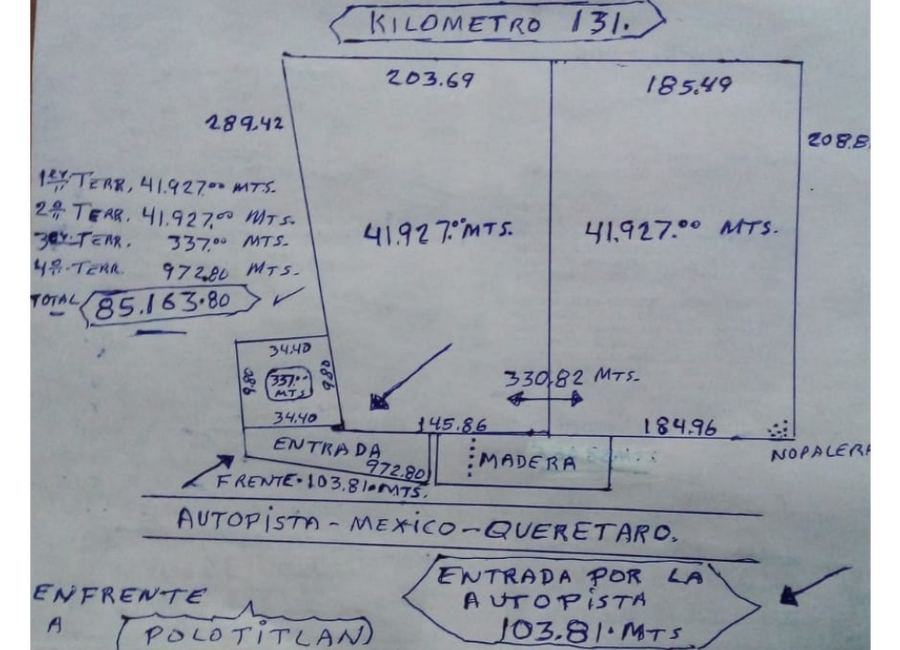 KILOMETRO 131.
203.69
185.49
289.42
208.8
1er TERR. 41.927.00 MTS.
2o TERR. 41.927.00 MTS.
3er TERR. 337.00 MTS.
4o TERR 972.80 MTS.
TOTAL 85.163.80
41.927.00 MTS.
41.927.00 MTS.
34.40
9.80
337.00
MTS
9.80
34.40
330.82 MTS.
145.86
184.96
ENTRADA
972.80
MADERA
NOPALERA
FRENTE 103.81 MTS.
AUTOPISTA-MEXICO-QUERETARO.
ENTRADA POR LA
AUTOPISTA
103.81 MTS
ENFRENTE
A
POLOTITLAN